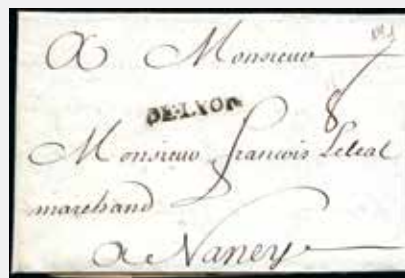 A Monsieur
DE LYON
8
Monsieur francois
marchand
a Nancy